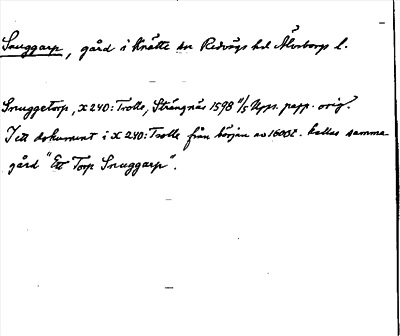 Snuggarp, gård i Knätte sn Redvägs hd Älvsborgs l.
Snuggetorp, X 240: Trolle, Strängnäs 1598 11/5 Upps. papp. orig.
I ett dokument i X 240: Trolle från början av 1600t. kallas samma
gård "Ett Torp Snuggarp".